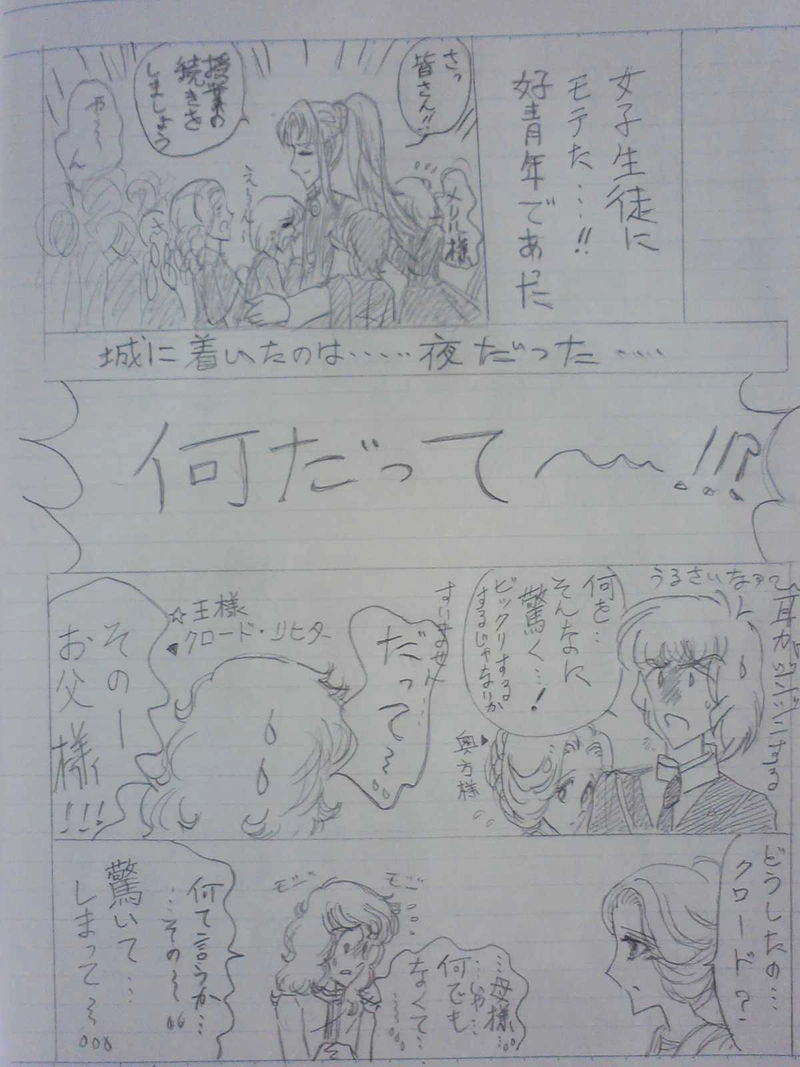 女子生徒に
モテた…!!
好青年であった
さっ
皆さん!!
授業の
続きを
しましょう
メリル様
え〜ん
や〜〜ん
城に着いたのは……夜だった……
何だって〜〜!!!?
うるさいなァ
耳がジンジンする
何を…
そんなに
驚く…!
ビックリする
するじゃないか
奥方様
すいません…
だって〜
☆王様
クロード・リヒター
そのー
お父様!!!
どうしたの…
クロード?
…母様…
…いや…
何でも
なくて…
モジ
モジ
何て言うか…
…その〜
驚いて…
しまって〜